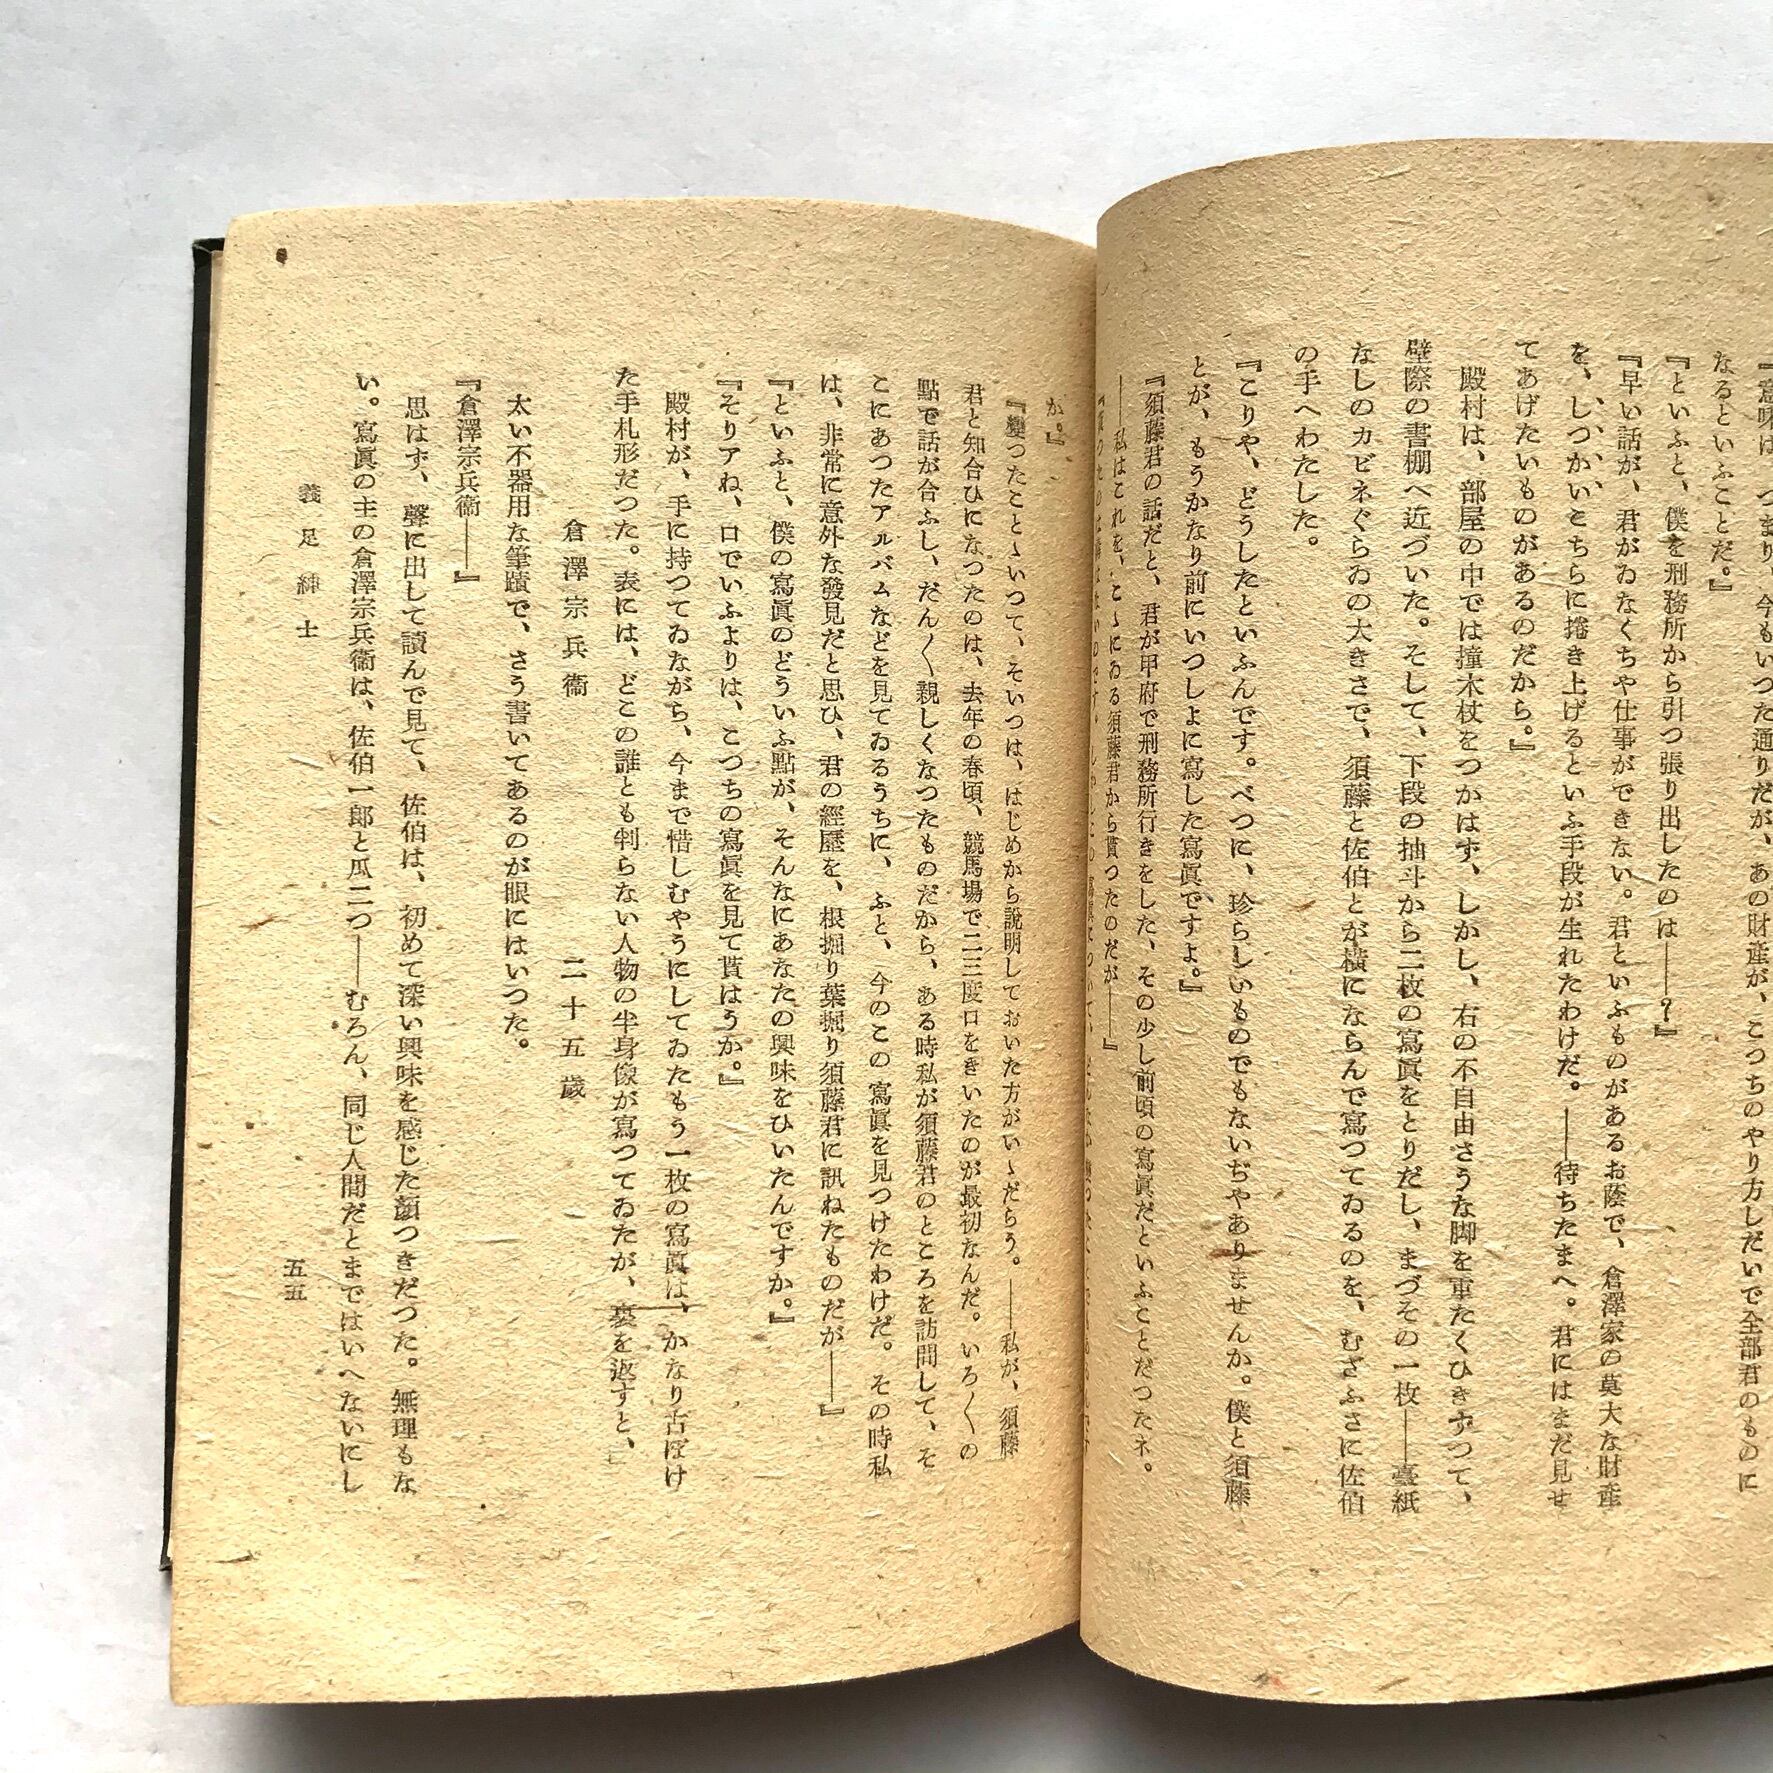 『意味は、つまり、今もいつた通りだが、あの財産が、こつちのやり方しだいで全部君のものに
なるといふことだ。』
『といふと、僕を刑務所から引つ張り出したのは――？』
『早い話が、君がゐなくちや仕事ができない。君といふものがあるお蔭で、倉澤家の莫大な財産
を、しつかいこちらに捲き上げるといふ手段が生れたわけだ。――待ちたまへ。君にはまだ見せ
てあげたいものがあるのだから。』
殿村は、部屋の中では撞木杖をつかはず、しかし、右の不自由さうな脚を重たくひきずつて、
壁際の書棚へ近づいた。そして、下段の抽斗から二枚の寫眞をとりだし、まづその一枚――臺紙
なしのカビネぐらゐの大きさで、須藤と佐伯とが横にならんで寫つてゐるのを、むざふさに佐伯
の手へわたした。
『こりや、どうしたといふんです。べつに、珍らしいものでもないぢやありませんか。僕と須藤
とが、もうかなり前にいつしよに寫した寫眞ですよ。』
『須藤君の話だと、君が甲府で刑務所行きをした、その少し前頃の寫眞だといふことだつたネ。
――私はこれを、こゝにゐる須藤君から貰つたのだが――』
か。』
『變つたことゝいつて、そいつは、はじめから説明しておいた方がいゝだらう。――私が、須藤
君と知合ひになつたのは、去年の春頃、競馬場で二三度口をきいたのが最初なんだ。いろ〱の
點で話が合ふし、だん〱親しくなつたものだから、ある時私が須藤君のところを訪問して、そ
こにあつたアルバムなどを見てゐるうちに、ふと、今のこの寫眞を見つけたわけだ。その時私
は、非常に意外な發見だと思ひ、君の經歴を、根掘り葉掘り須藤君に訊ねたものだが――』
『といふと、僕の寫眞のどういふ點が、そんなにあなたの興味をひいたんですか。』
『そりアね、口でいふよりは、こつちの寫眞を見て貰はうか。』
殿村が、手に持つてゐながら、今まで惜しむやうにしてゐたもう一枚の寫眞は、かなり古ぼけ
た手札形だつた。表には、どこの誰とも判らない人物の半身像が寫つてゐたが、裏を返すと、
倉澤宗兵衞　二十五歳
太い不器用な筆蹟で、さう書いてあるのが眼にはいつた。
『倉澤宗兵衞――』
思はず、聲に出して讀んで見て、佐伯は、初めて深い興味を感じた顏つきだつた。無理もな
い。寫眞の主の倉澤宗兵衞は、佐伯一郎と瓜二つ――むろん、同じ人間だとまではいへないにし
義足紳士
五五